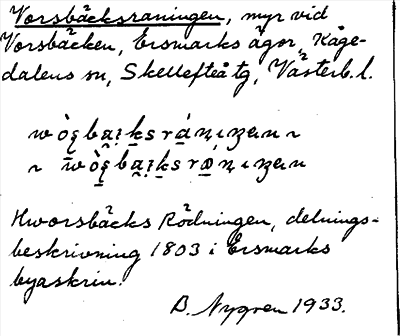 Vorsbäcksraningen, myr vid
Vorsbäcken, Ersmarks ägor, Kåge-
dalens sn, Skellefteå tg, Västerb. l.
Hworsbäcks Rödningen, delnings-
beskrivning 1803 i Ersmarks
byaskrin.
B. Nygren 1933.